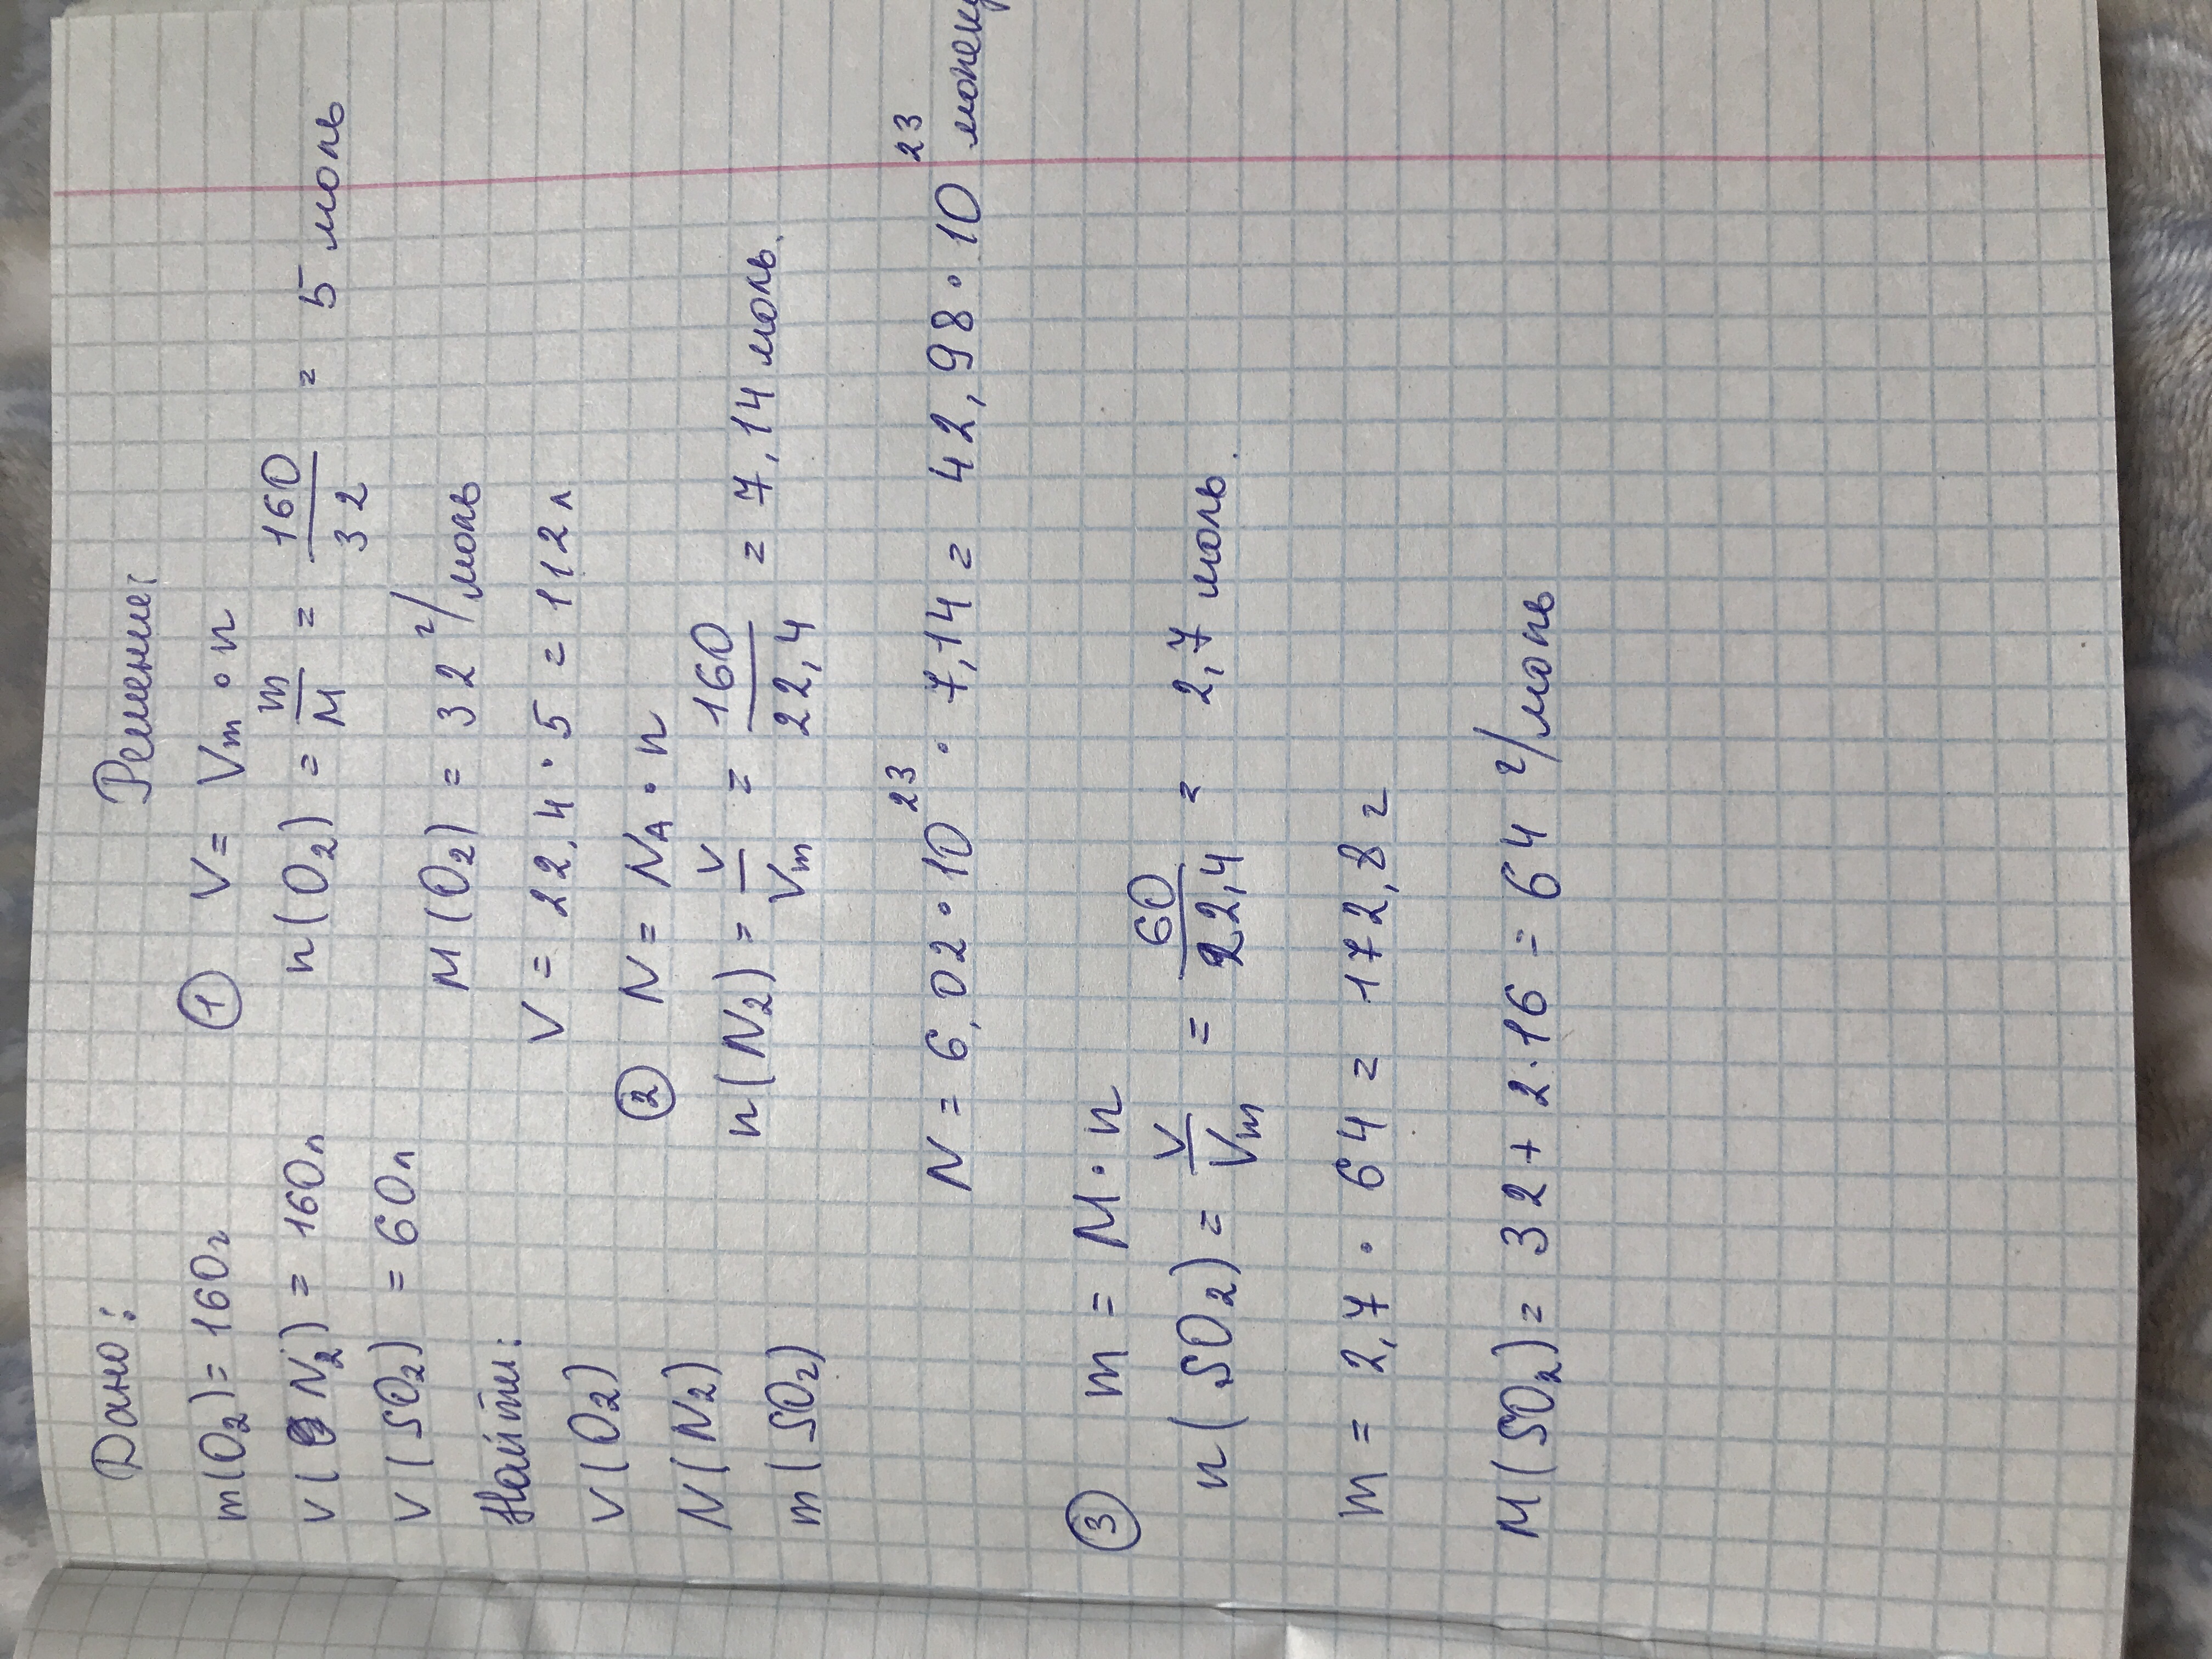 Дано:
m(O₂) = 160г
V(N₂) = 160л
V(SO₂) = 60л
Найти:
V(O₂)
N(N₂)
m(SO₂)
Решение:
① V = Vm · n
n(O₂) = m/M = 160/32 = 5 моль
M(O₂) = 32 г/моль
V = 22,4 · 5 = 112 л
② N = NA · n
n(N₂) = V/Vm = 160/22,4 = 7,14 моль.
N = 6,02 · 10²³ · 7,14 = 42,98 · 10²³ молеку
③ m = M · n
n(SO₂) = V/Vm = 60/22,4 = 2,7 моль.
m = 2,7 · 64 = 172,8 г
M(SO₂) = 32 + 2·16 = 64 г/моль